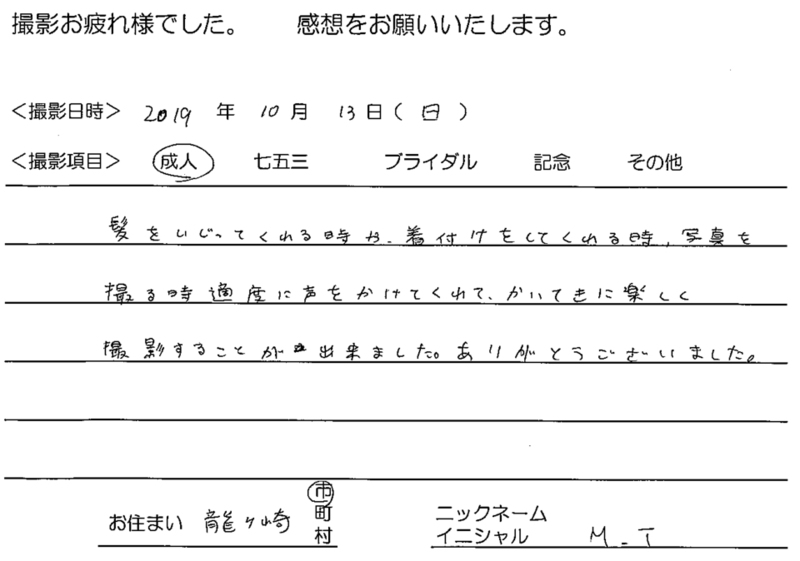 撮影お疲れ様でした。 感想をお願いいたします。
＜撮影日時＞ 2019 年 10 月 13 日 ( 日 )
＜撮影項目＞ 成人 七五三 ブライダル 記念 その他
髪をいじってくれる時や、着付けをしてくれる時、写真を
撮る時適度に声をかけてくれて、かいてきに楽しく
撮影することが出来ました。ありがとうございました。
お住まい 龍ヶ崎 市 町 村
ニックネーム イニシャル M.T